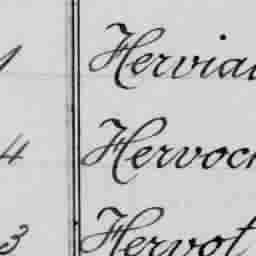 1 Herviau
4 Hervoch
3 Hervot